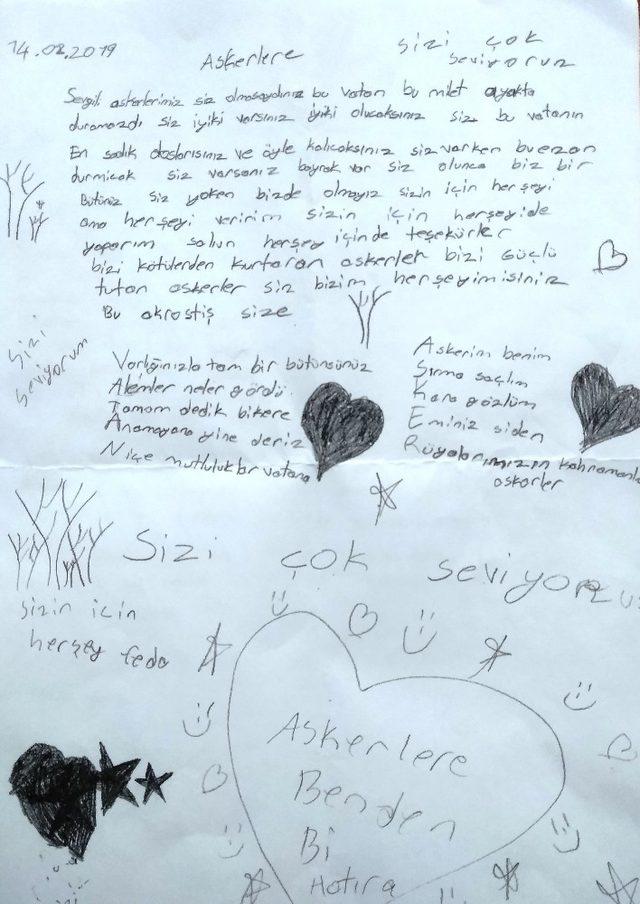 14.02.2019
Askerlere
sizi çok
seviyoruz
Sevgili askerlerimiz siz olmasaydınız bu vatan bu milet ayakta
duramazdı siz iyiki varsınız iyiki olucaksınız siz bu vatanın
En sadık dostlarısınız ve öyle kalıcaksınız siz varken bu ezan
durmicak siz varsanız bayrak var siz olunca biz bir
Bütünüz siz yoken bizde olmayız sizin için herşeyi
ama herşeyi veririm sizin için herşeyide
yaparım salun herşey içinde teşekürler
bizi kötülerden kurtaran askerler bizi Güçlü
tutan askerler siz bizim herşeyimisiniz
Bu akrostiş size
sizi
seviyorum
Varlığınızla tam bir bütünsünüz
Alemler neler gördü
Tamam dedik bikere
Anamayana yine deriz
Niçe mutluluklar vatana
Askerim benim
Sırma saçlım
Kara gözlüm
Eminiz siden
Rüyalarımızın kahramanla
askerler
Sizi çok seviyoruz
sizin için
herşey feda
Askerlere
Benden
Bi
Hatıra
sizi